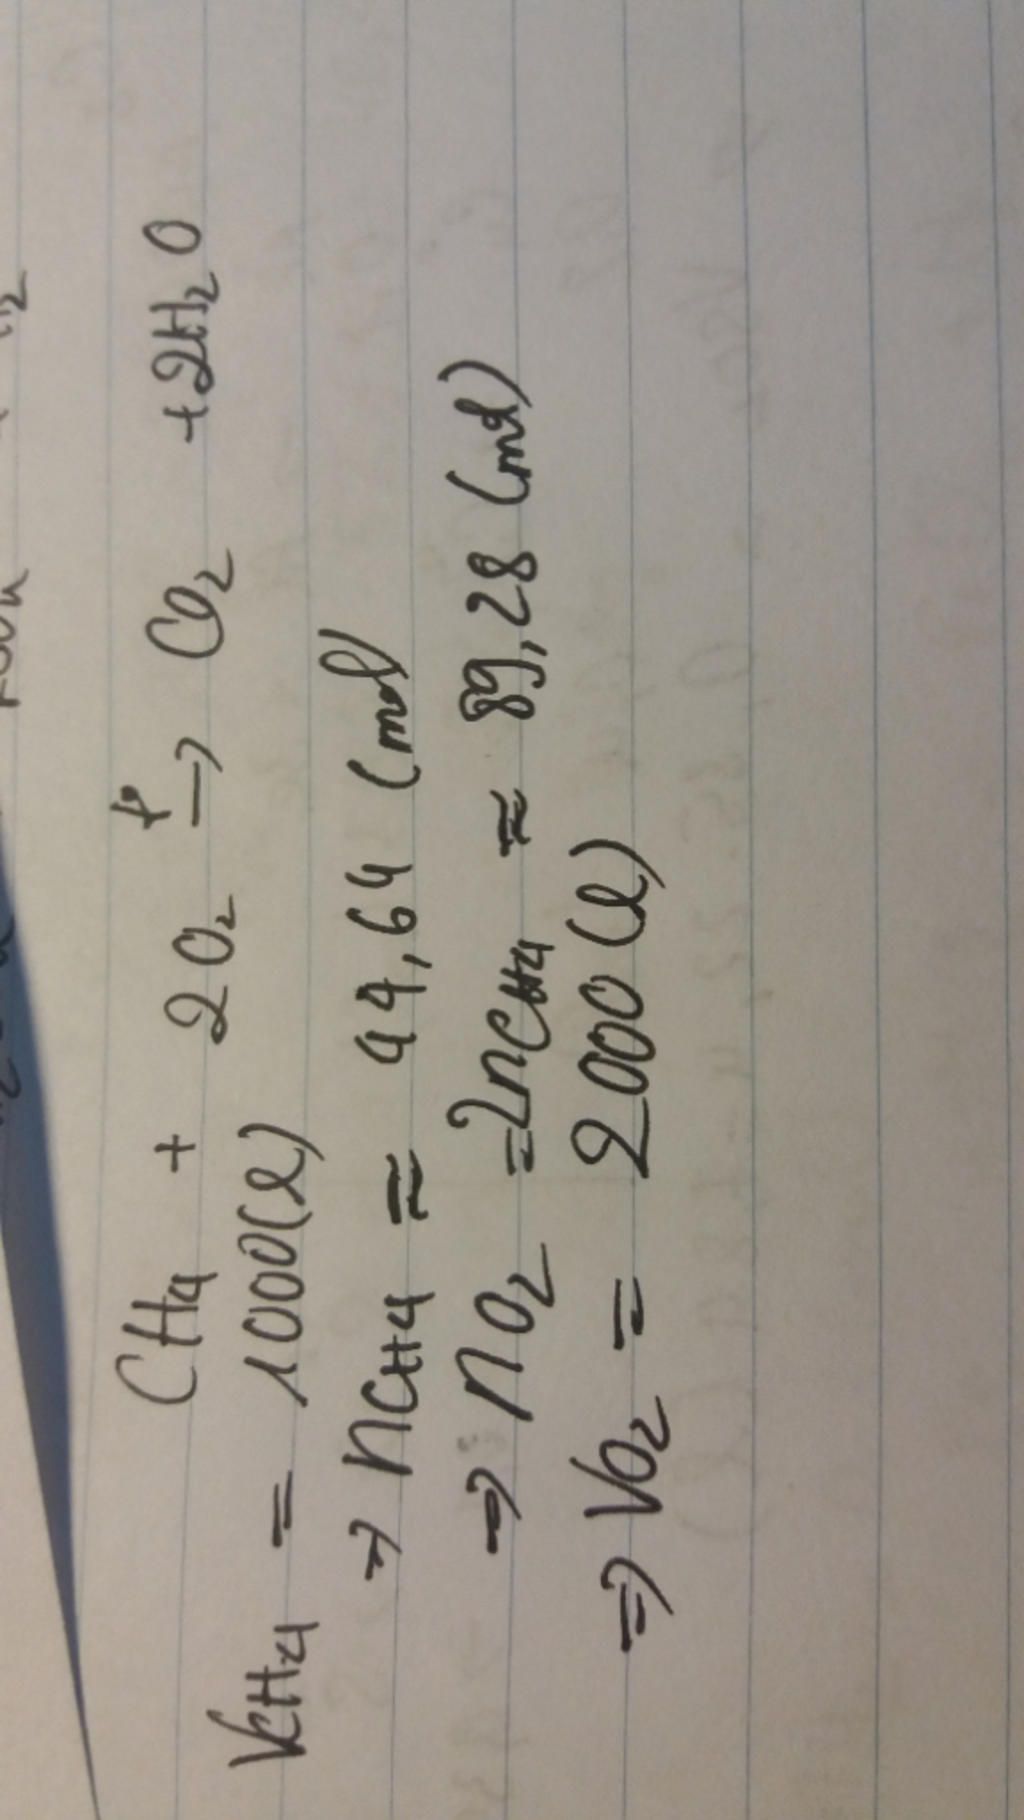 CH₄ + 2O₂ →t° CO₂ + 2H₂O
VCH₄ = 1000(l)
⇒ nCH₄ ≈ 44,64 (mol)
⇒ nO₂ = 2nCH₄ ≈ 89,28 (mol)
⇒ VO₂ = 2000(l)